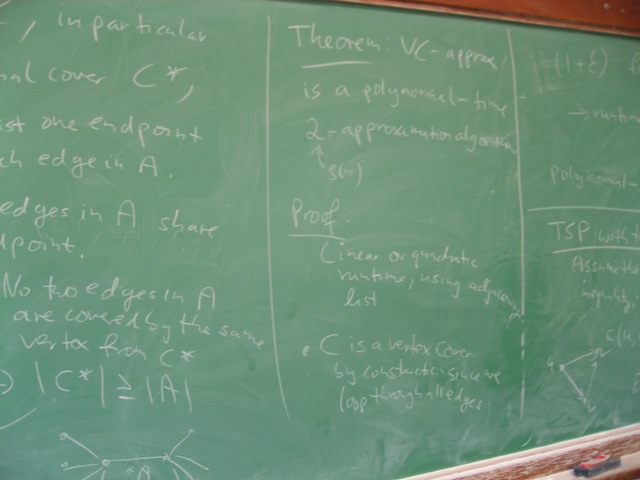 , in particular
nal cover C*,
ast one endpoint
ch edge in A.
edges in A share
dpoint.
No two edges in A
are covered by the same
vertex from C*
|C*| ≥ |A|
Theorem: VC-approx
is a polynomial-time
2-approximation algorithm
↑
ρ(n)
Proof.
Linear or quadratic
runtime, using adjacency
list
• C is a vertex cover
by construction since we
loop through all edges
(1+ε)
→ runtim
polynomial-
TSP with
Assume th
inequality
c(u,
u